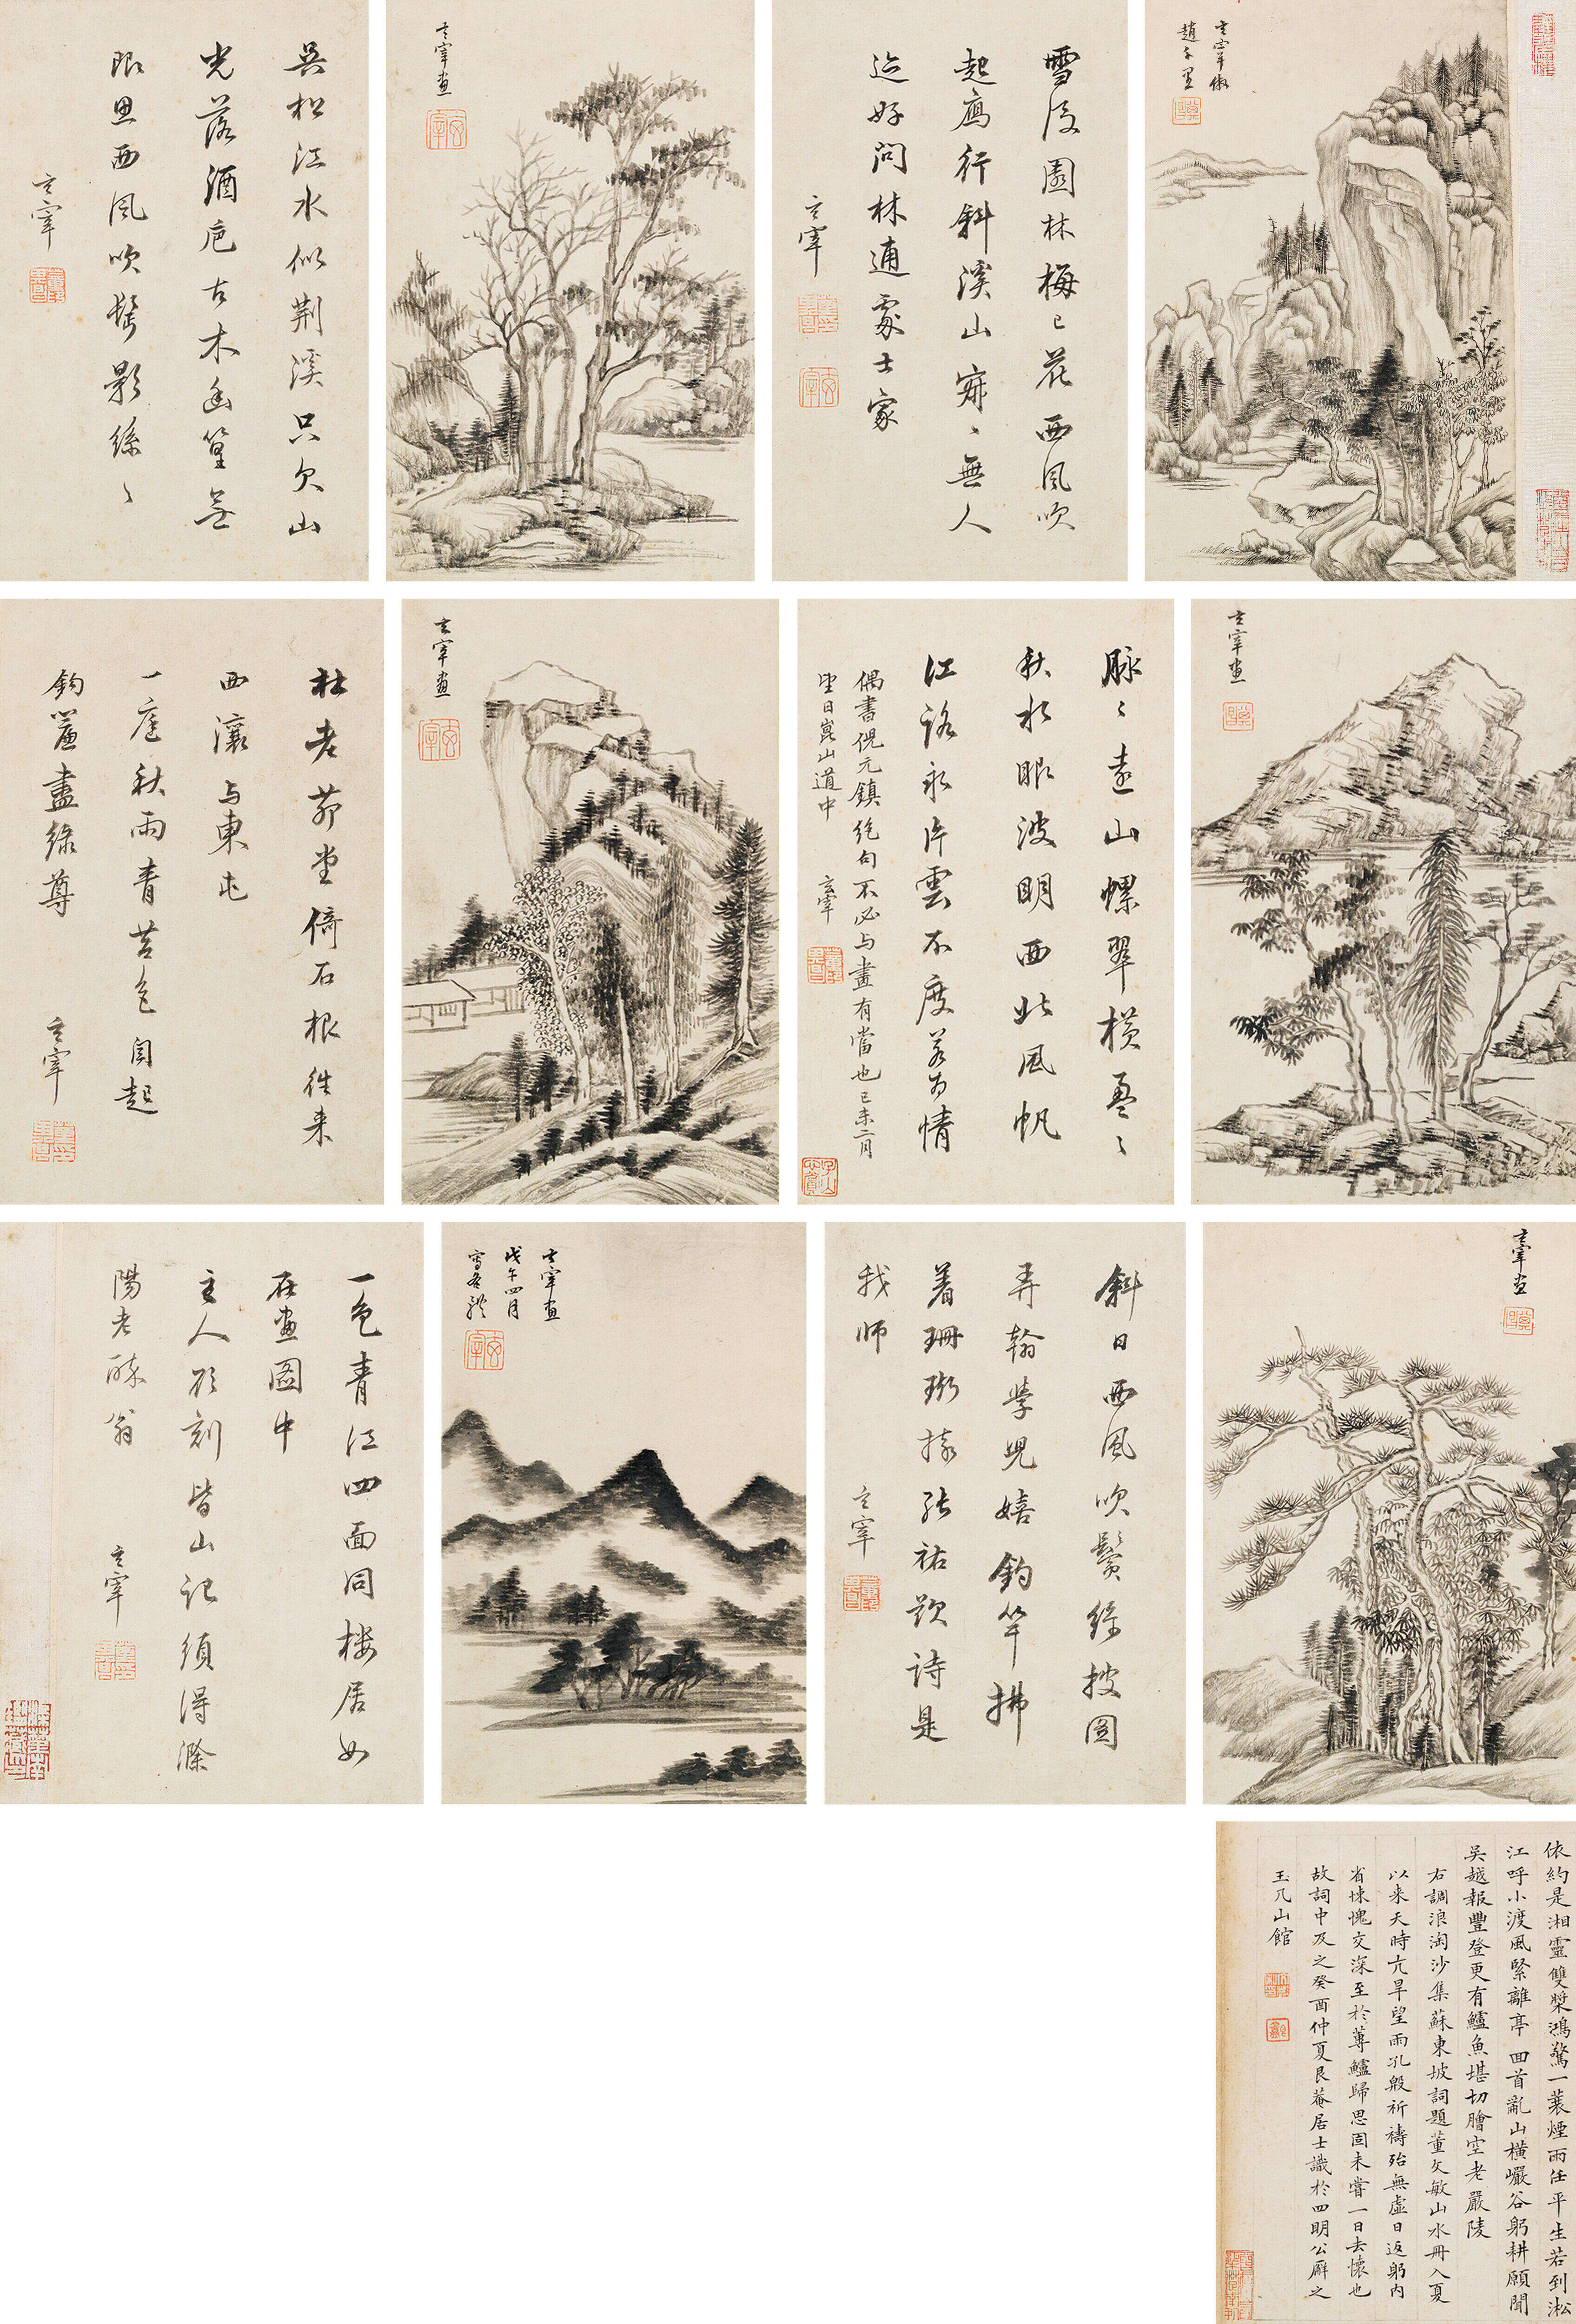 玄宰倣
趙千里
雪後園林梅已花西風吹
起鴈行斜溪山寂〻無人
迹好問林逋處士家
玄宰
玄宰畫
吳松江水似荆溪只欠山
光落酒巵古木幽篁無
限思西風吹鬢影絲〻
玄宰
玄宰畫
脉〻遠山螺翠橫盈〻
秋水眼波明西北風帆
江路永片雲不度若為情
偶書倪元鎮絶句不必与畫有當也己未二月
望日崑山道中
玄宰
玄宰畫
杜老茆堂倚石根往来
西瀼与東屯
一庭秋雨青苔色自起
鉤簾盡綠尊
玄宰
玄宰畫
斜日西風吹鬢絲披圖
弄翰學兒嬉釣竿拂
著珊瑚樹張祐題詩是
我師
玄宰
玄宰畫
戊午四月
一色青江四面同樓居如
在畫圖中
主人欲刻皆山記須得滁
陽老醉翁
玄宰
依約是湘靈雙槳鴻驚一蓑煙雨任平生若到淞
江呼小渡風緊離亭 回首亂山橫巖谷躬耕願聞
吳越報豐登更有鱸魚堪切膾空老嚴陵
右調浪淘沙集蘇東坡詞題董文敏山水冊入夏
以来天時亢旱望雨孔殷祈禱殆無虛日返躬内
省悚愧交深至於蓴鱸歸思固未嘗一日去懷也
故詞中及之癸酉仲夏艮菴居士識於四明公廨之
玉几山館